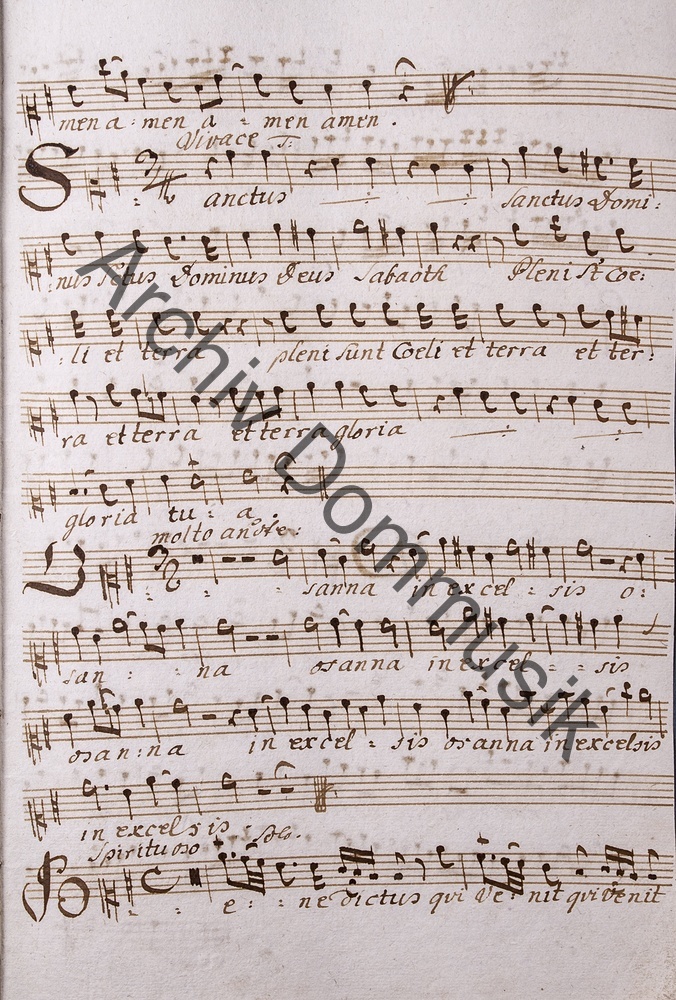 men a : men a = men amen .
Vivace
Sanctus sanctus Domi :
nus Sctus Dominus Deus Sabaoth Pleni st Coe :
: li et terra pleni sunt Coeli et terra et ter :
ra et terra et terra gloria
gloria tu : a .
molto andte :
O : : sanna in excel = sis o :
san : : na osanna in excel = = sis
osan : na in excel = sis osanna in excelsis
in excelsis
Spirituoso solo .
B : : e : : nedictus qui Ve : nit qui venit
Archiv Dommusik